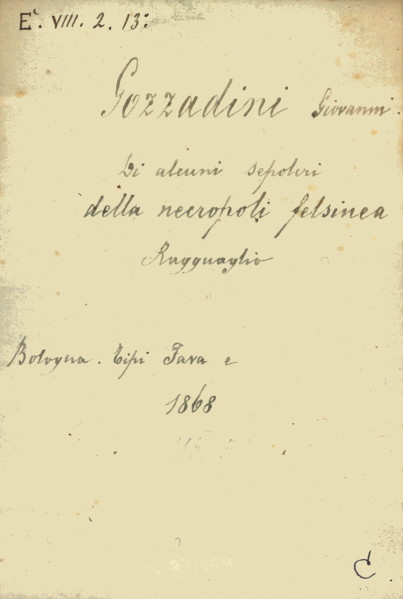 E. VIII. 2. 13:
Gozzadini Giovanni.
Di alcuni sepolcri
della necropoli felsinea
Ragguaglio
Bologna. Tipi Fava e
1868
C